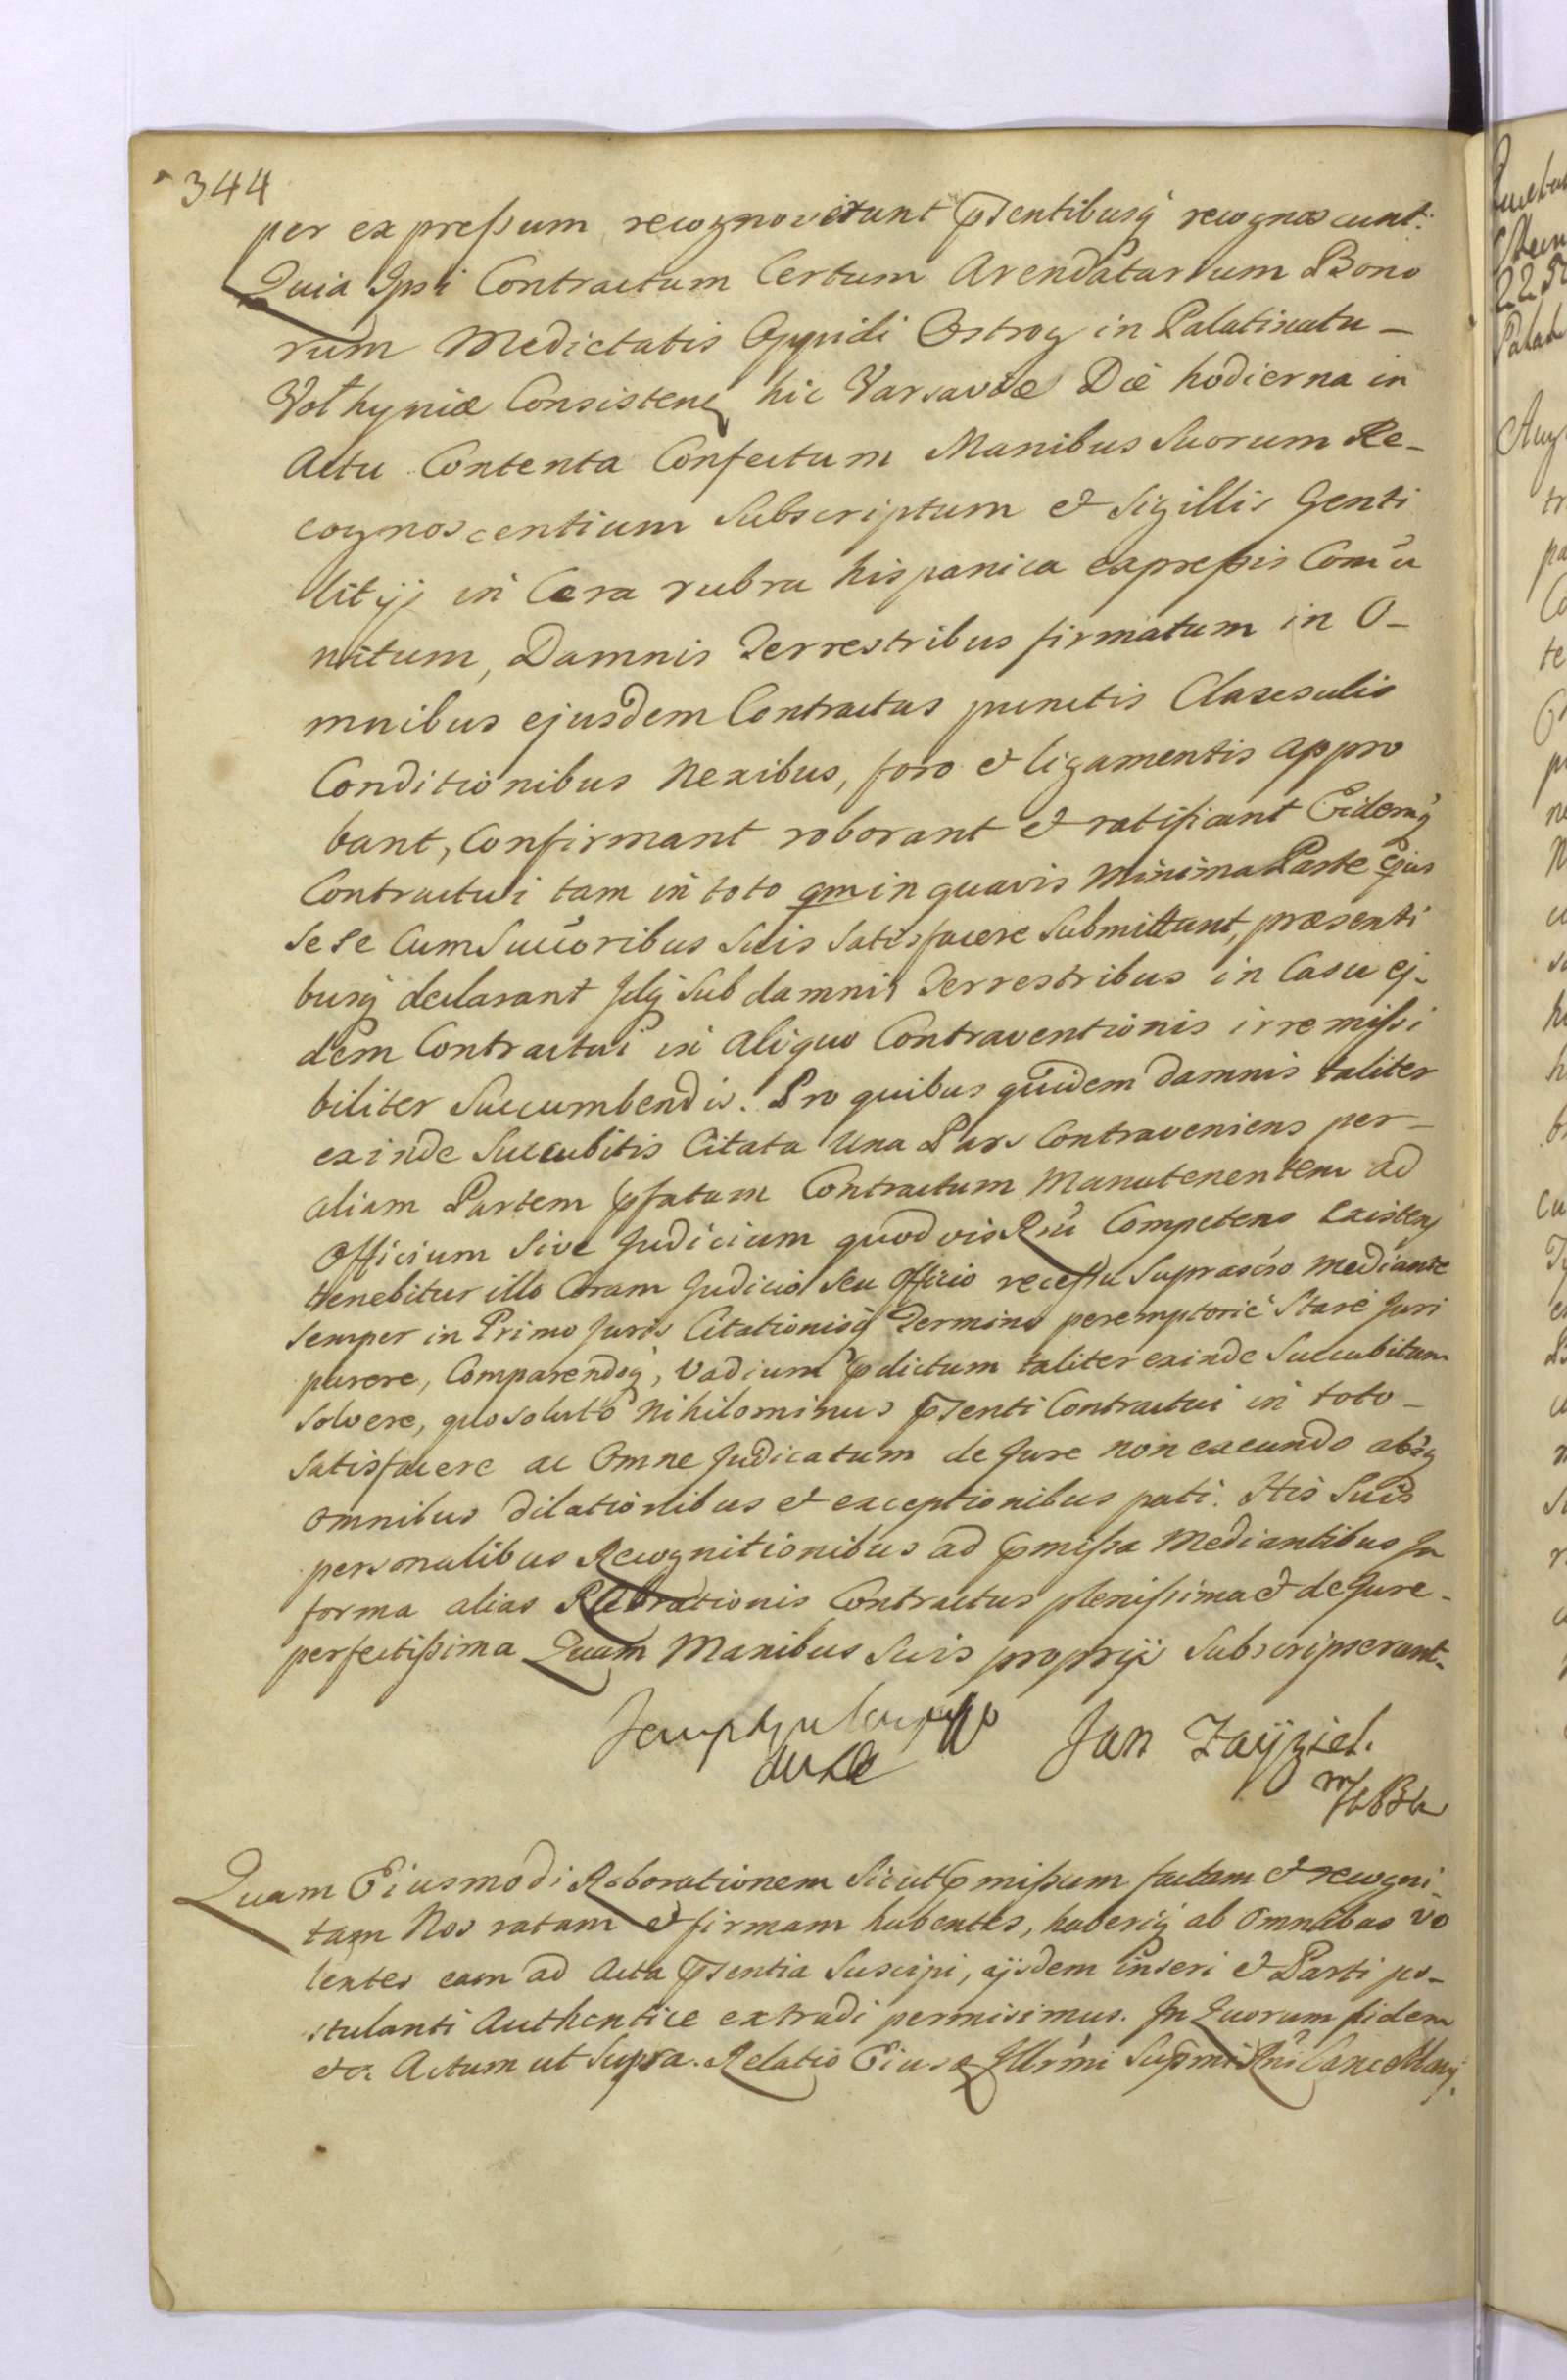 344
per expressum recognoverunt pñsentibusq́ recognoscunt.
Quia Ipsi Contractum Certum Arendatarium Bono
rum Medietatis Oppidi Ostrog in Palatinatu –
Vołhyniæ Consisteñ hic Varsaviæ Die hodierna in
Actu Contenta Confectum Manibus Suorum Re-
cognoscentium Subscriptum & Sigillis Genti
litijs in Cera rubra hispanica expressis Com̃u
nitum, Damnis Terrestribus firmatum in O-
mnibus ejusdem Contractus punctis Clausulis
Conditionibus Nexibus, foro & ligamentis appro
bant, Confirmant roborant & ratificant Eidemq́
Contractui tam in toto qm in quavis Minima Parte Ejus
Sese Cum Succ̃oribus Suis Satisfacere Submittunt, præsenti
busq́ declarant Idq́ Sub damnis Terrestribus in Casu ej-
dem Contractui in aliquo Contraventionis irremissi
biliter Succumbendis. Pro quibus quidem damnis taliter
exinde Succubitis Citata Una Pars Contraveniens per –
aliam Partem pfatum Contractum Manutenentem ad
Officium Sive Judicium quodvis Rni Competens Existeñ
tenebitur illo Coram Judicio Seu Officio recessu Suprascro mediante
Semper in Primo Juris Citationisq́ Termino peremptorie Stare Juri
parere, Comparendoq́, Vadium pdictum taliter exinde Succubitum
Solvere, quo soluto Nihilominus pñsenti Contractui in toto –
Satisfacere ac Omne Judicatum de Jure non exeundo absq́
Omnibus dilationibus & exceptionibus pati. His Suis
personalibus Recognitionibus ad pmissa Mediantibus In
forma alias Roborationis Contractus plenissima & de Jure –
perfectissima Quam Manibus Suis proprijs Subscripserunt.
Jan Zayziel.
Quam Eiusmodi Roborationem Sicut pmissum factam & recogni-
tam Nos ratam & firmam habentes, haberiq́ ab Omnibus vo
lentes eam ad Acta pñsentia Suscipi, ijsdem inseri & Parti po-
stulanti Authentice extradi permisimus. In Quorum fidem
&c. Actum ut Supra. Relatio Eiusd Illrmi Supmi Rni Cancellarij.